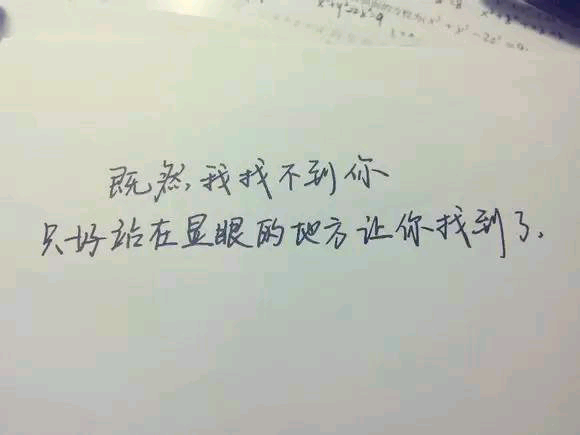 既然，我找不到你
只好站在显眼的地方让你找到了.